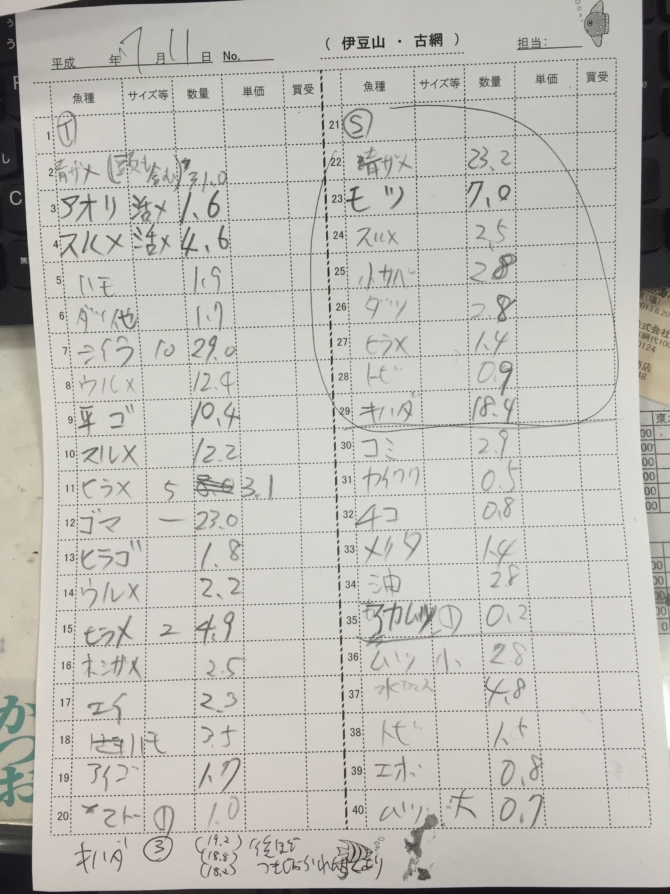 (伊豆山・古網)
平成 年 7 月 11 日 No. 担当:
魚種 サイズ等 数量 単価 買受
1 Ⓣ
2 青ザメ (頭も含む) 31.0
3 アオリ 活〆 1.6
4 スルメ 活〆 4.6
5 ハモ 1.9
6 ダツ他 1.7
7 シイラ 10 29.0
8 ウルメ 12.4
9 平ゴ 10.4
10 スルメ 12.2
11 ヒラメ 5 3.1
12 ゴマ ー 23.0
13 ヒラゴ 1.8
14 ウルメ 2.2
15 ヒラメ 2 4.9
16 ホシザメ 2.5
17 エイ 2.3
18 ハモ 3.5
19 アイゴ 1.7
20 マトー ① 1.0
魚種 サイズ等 数量 単価 買受
21 Ⓢ
22 青ザメ 23.2
23 モツ 7.0
24 スルメ 2.5
25 小カバ 2.8
26 ダツ 2.8
27 ヒラメ 1.4
28 トビ 0.9
29 キハダ 18.4
30 コミ 2.9
31 カイワリ 0.5
32 タコ 0.8
33 メイタ 1.4
34 油 2.8
35 アカムツ ① 0.2
36 ムツ 小 2.8
37 水カマス 4.8
38 トビ
39 エボ 0.8
40 ムツ 大 0.7
キハダ ③ (19.2)
(18.8)
(18.2)
かつお